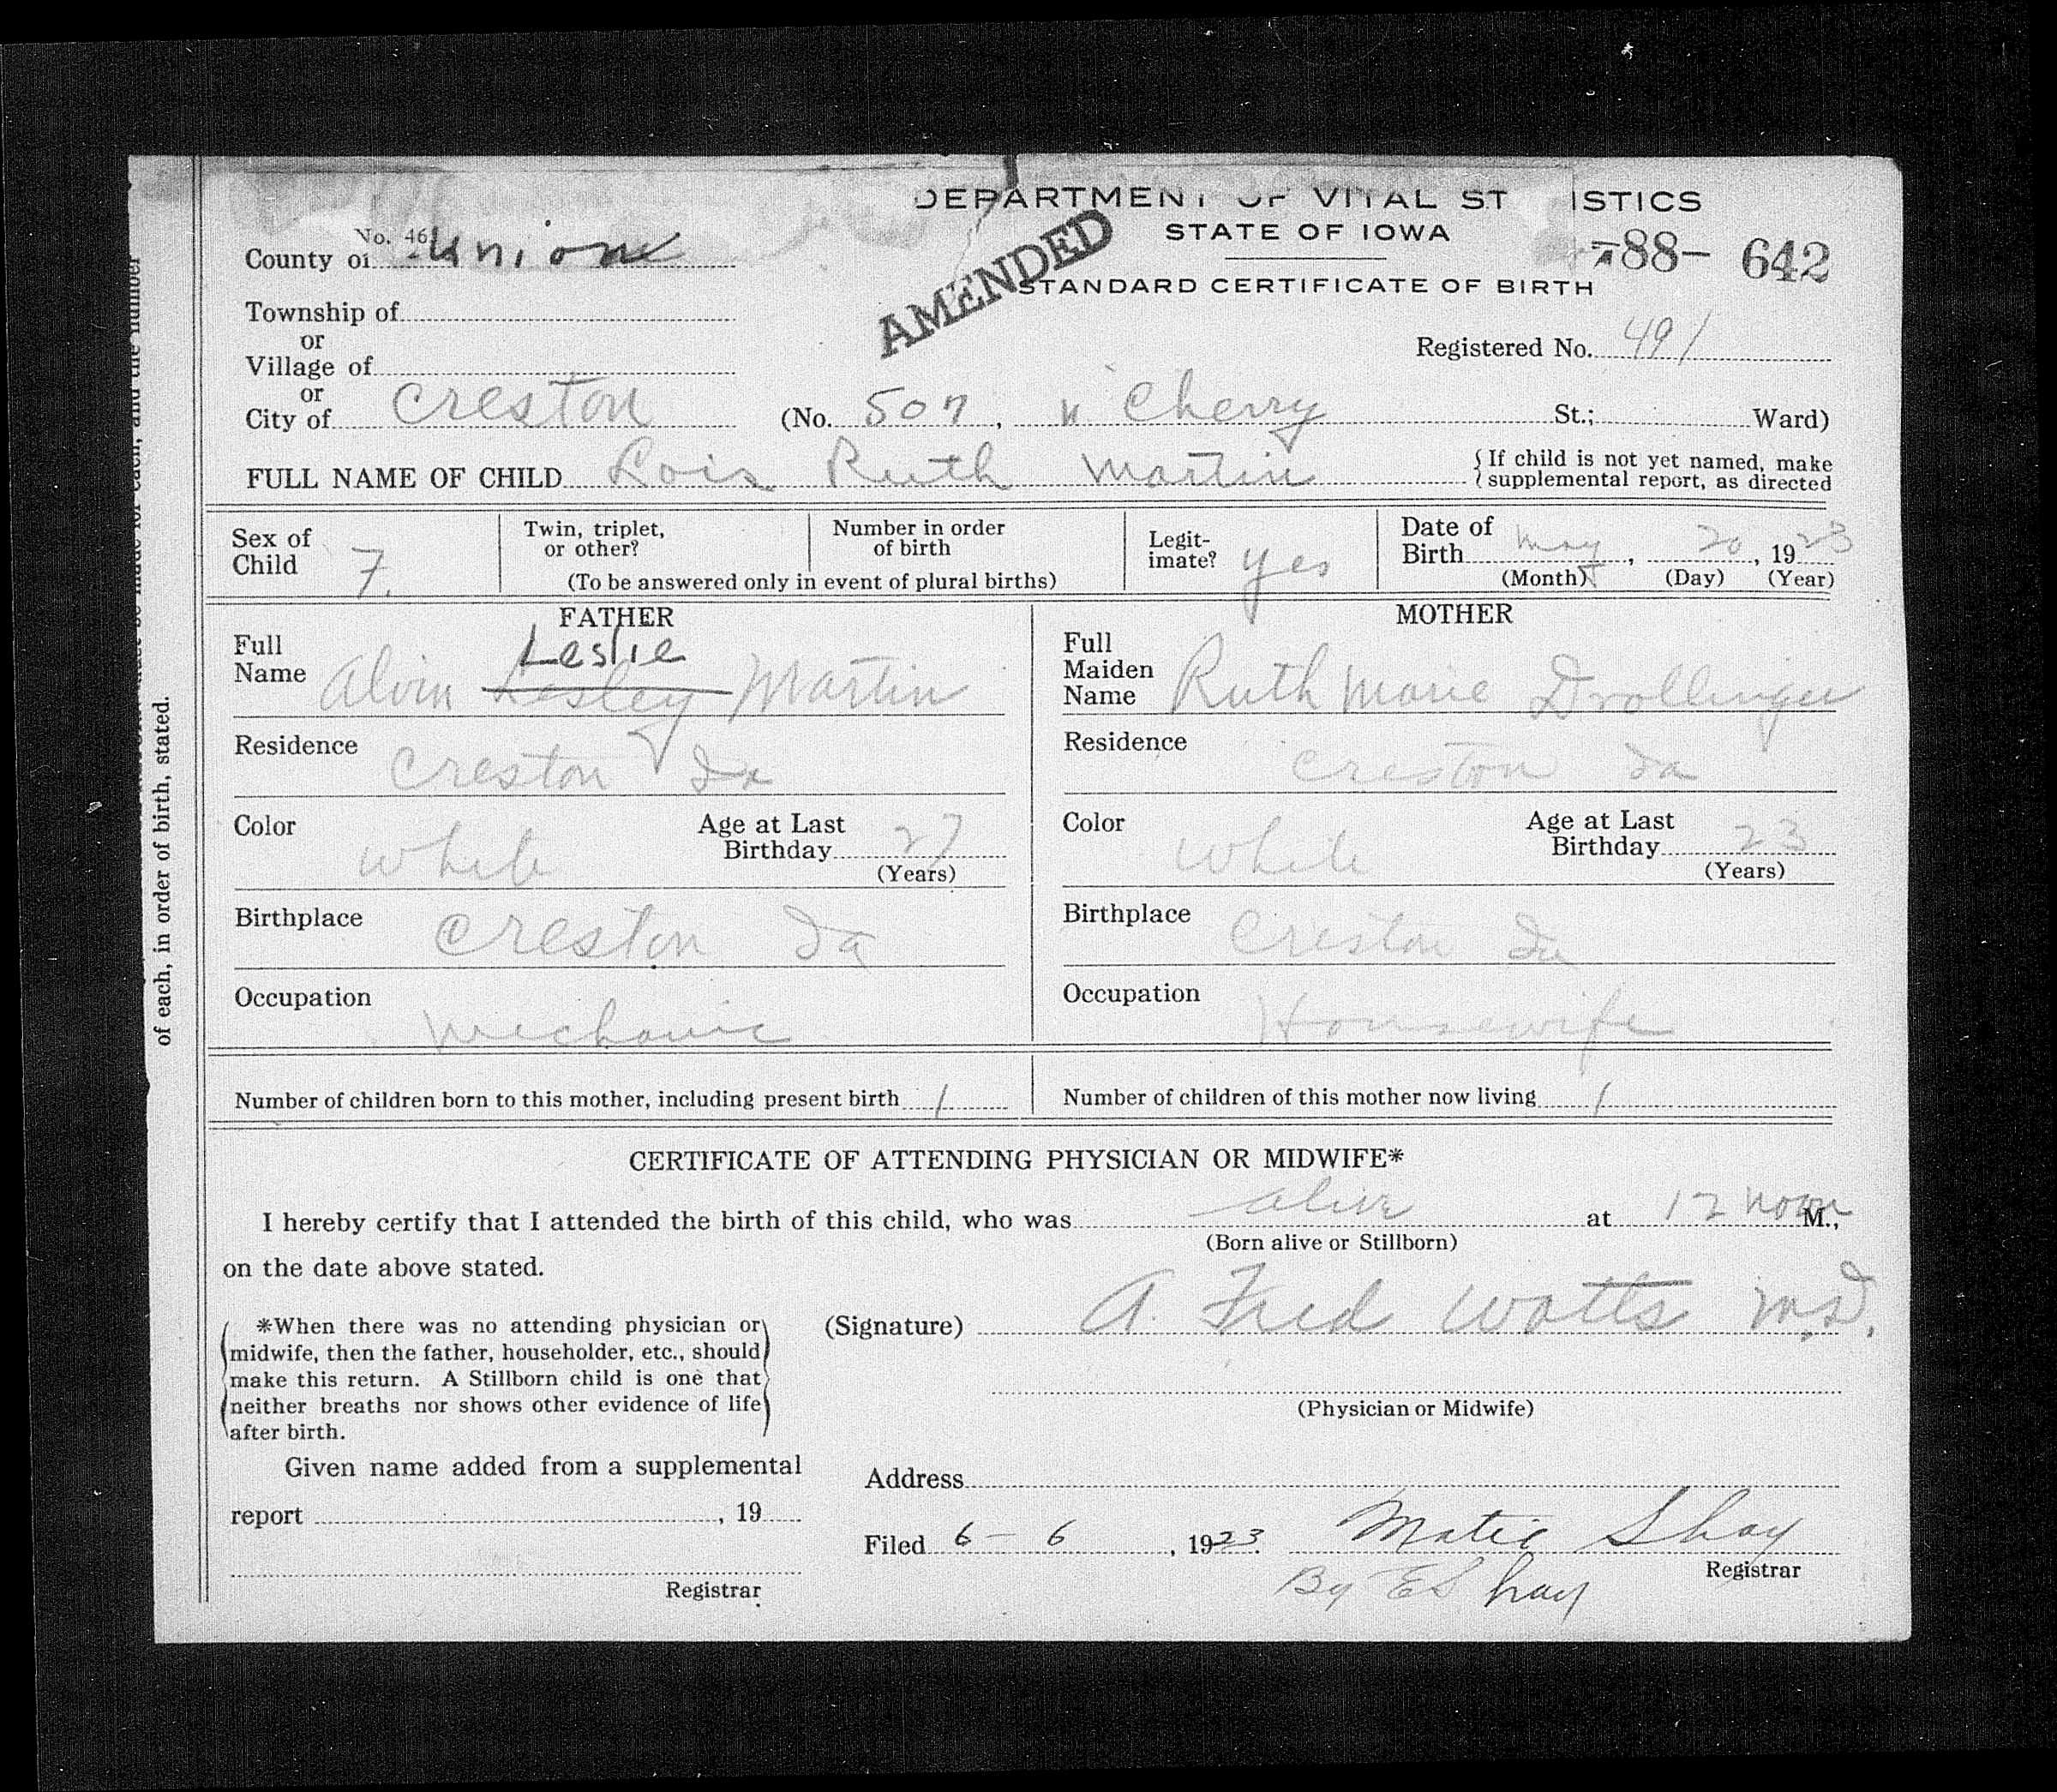 DEPARTMENT OF VITAL ST ISTICS
STATE OF IOWA
788- 642
AMENDED
STANDARD CERTIFICATE OF BIRTH
No. 46
County of Union
Township of
or
Village of
Registered No. 491
or
City of Creston (No. 507, N Cherry St.; Ward)
FULL NAME OF CHILD Lois Ruth Martin {If child is not yet named, make
supplemental report, as directed
Sex of Child F.
Twin, triplet, or other?
Number in order of birth
(To be answered only in event of plural births)
Legit-
imate? yes
Date of
Birth May, 20, 1923
(Month) (Day) (Year)
FATHER
Full Name Alvin Lesley Martin
Leslie
Residence Creston Ia
Color White
Age at Last Birthday 27
(Years)
Birthplace Creston Ia
Occupation Mechanic
MOTHER
Full Maiden Name Ruth Marie Drollinger
Residence Creston Ia
Color White
Age at Last Birthday 23
(Years)
Birthplace Creston Ia
Occupation Housewife
Number of children born to this mother, including present birth 1
Number of children of this mother now living 1
CERTIFICATE OF ATTENDING PHYSICIAN OR MIDWIFE*
I hereby certify that I attended the birth of this child, who was alive at 12 noon M.,
(Born alive or Stillborn)
on the date above stated.
*When there was no attending physician or
midwife, then the father, householder, etc., should
make this return. A Stillborn child is one that
neither breaths nor shows other evidence of life
after birth.
(Signature) A. Fred Watts M.D.
(Physician or Midwife)
Given name added from a supplemental
report , 19
Registrar
Address
Filed 6-6, 1923. Matie Shay
Registrar
By E Shay
of each, in order of birth, stated.